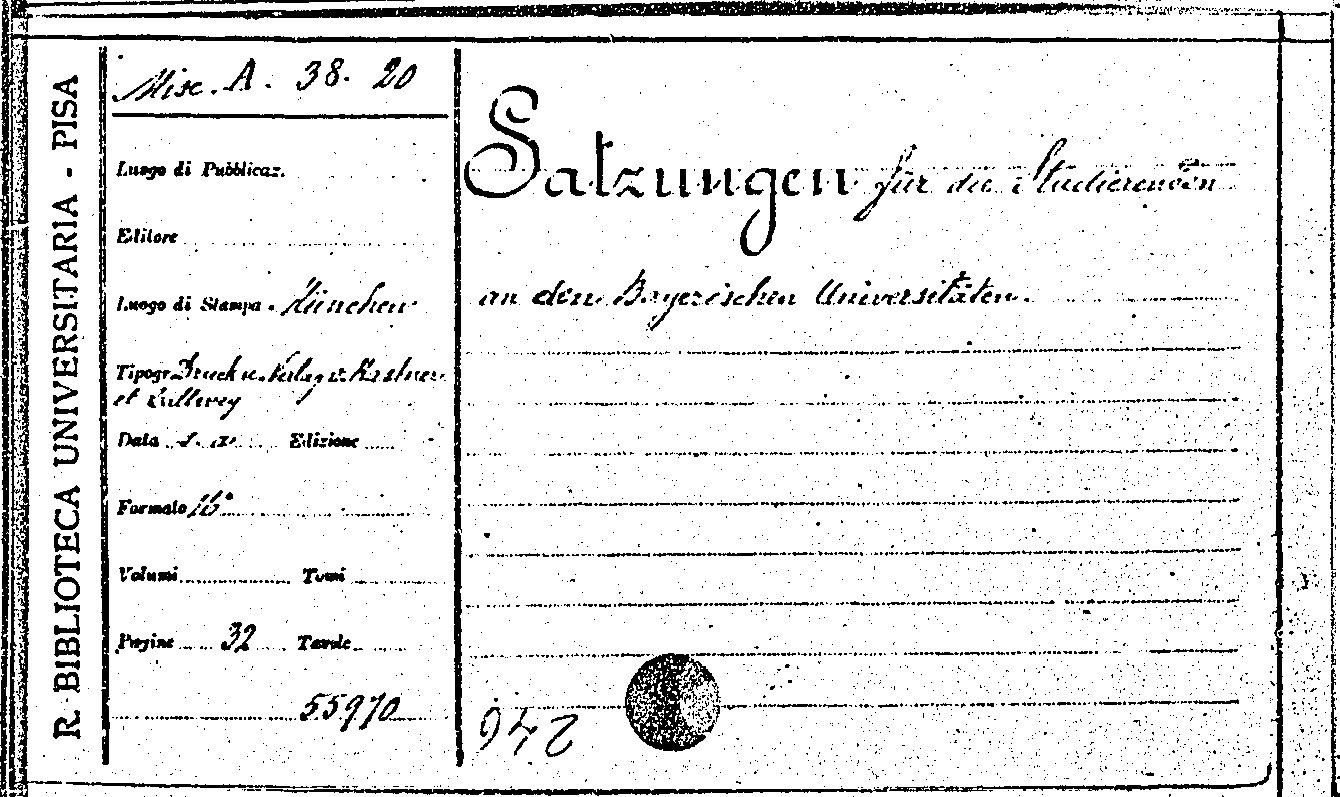 R. BIBLIOTECA UNIVERSITARIA - PISA
Misc. A. 38. 20
Luogo di Pubblicaz.
Editore
Luogo di Stampa München
Tipogr. Druck u. Verlag v. Kastner
et Lullwey
Data Edizione
Formato 16°
Volumi Tomi
Pagine 32 Tavole
55970
Satzungen für die Studierenden
an den Bayerischen Universitäten.